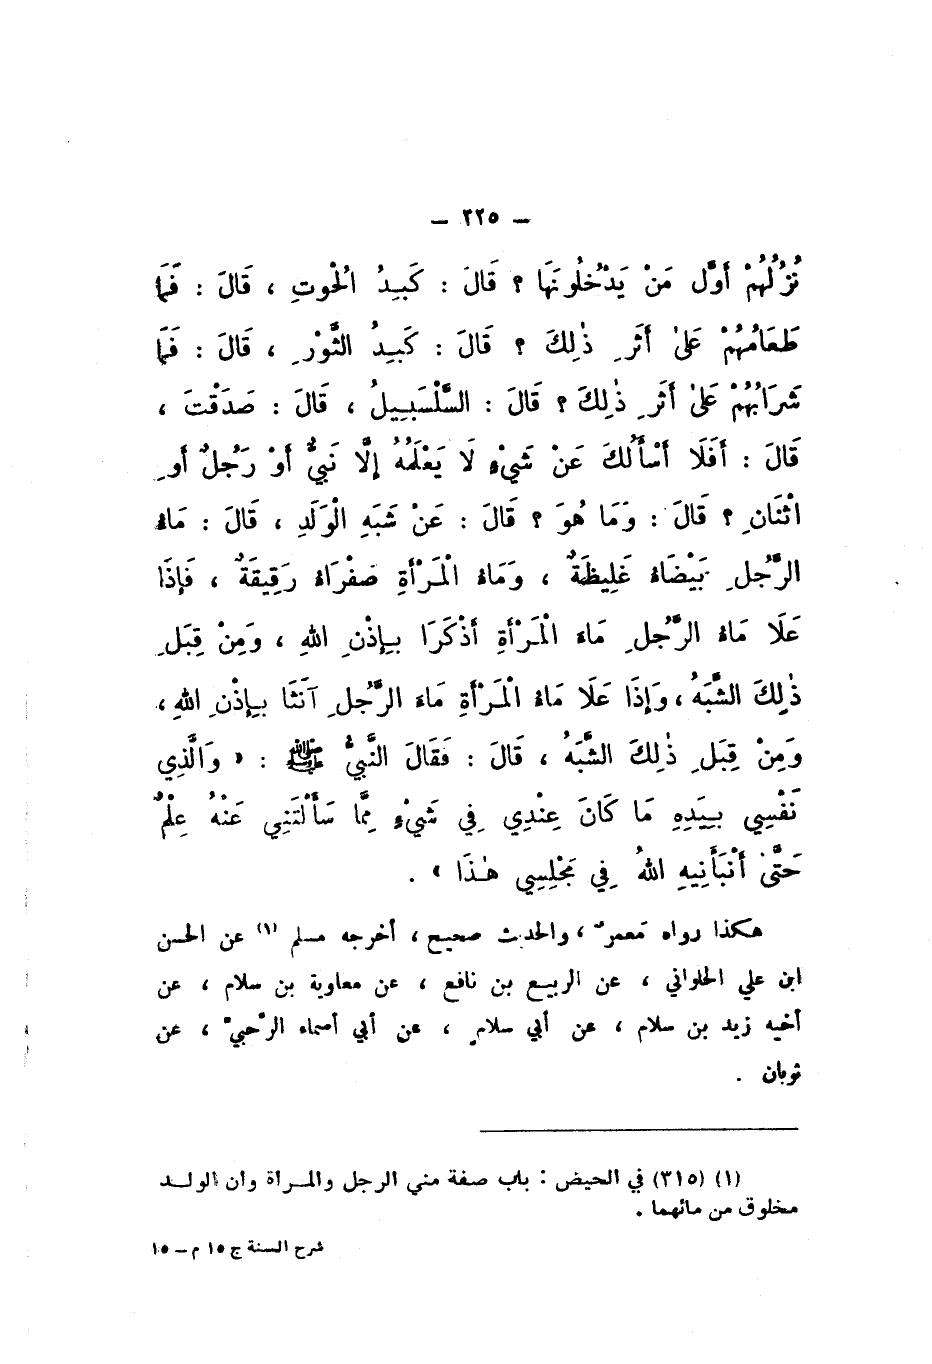 – ٢٢٥ –
نُزُلُهُمْ أَوَّلَ مَنْ يَدْخُلُونَهَا ؟ قَالَ : كَبِدُ الْحُوتِ ، قَالَ : فَمَا
طَعَامُهُمْ عَلَىٰ أَثَرِ ذٰلِكَ ؟ قَالَ : كَبِدُ الثَّوْرِ ، قَالَ : فَمَا
شَرَابُهُمْ عَلَىٰ أَثَرِ ذٰلِكَ ؟ قَالَ : السَّلْسَبِيلُ ، قَالَ : صَدَقْتَ ،
قَالَ : أَفَلَا أَسْأَلُكَ عَنْ شَيْءٍ لَا يَعْلَمُهُ إِلَّا نَبِيٌّ أَوْ رَجُلٌ أَوِ
اثْنَانِ ؟ قَالَ : وَمَا هُوَ ؟ قَالَ : عَنْ شَبَهِ الْوَلَدِ ، قَالَ : مَاءُ
الرَّجُلِ بَيْضَاءُ غَلِيظَةٌ ، وَمَاءُ الْمَرْأَةِ صَفْرَاءُ رَقِيقَةٌ ، فَإِذَا
عَلَا مَاءُ الرَّجُلِ مَاءَ الْمَرْأَةِ أَذْكَرَا بِإِذْنِ اللهِ ، وَمِنْ قِبَلِ
ذٰلِكَ الشَّبَهُ ، وَإِذَا عَلَا مَاءُ الْمَرْأَةِ مَاءَ الرَّجُلِ آنَثَا بِإِذْنِ اللهِ ،
وَمِنْ قِبَلِ ذٰلِكَ الشَّبَهُ ، قَالَ : فَقَالَ النَّبِيُّ ﷺ : « وَالَّذِي
نَفْسِي بِيَدِهِ مَا كَانَ عِنْدِي فِي شَيْءٍ مِمَّا سَأَلْتَنِي عَنْهُ عِلْمٌ
حَتَّىٰ أَنْبَأَنِيهِ اللهُ فِي مَجْلِسِي هٰذَا » .
هكذا رواه مَعمرٌ ، والحديث صحيح ، أخرجه مسلم (١) عن الحسن
ابن علي الحلواني ، عن الربيع بن نافع ، عن معاوية بن سلام ، عن
أخيه زيد بن سلام ، عن أبي سلامٍ ، عن أبي أسماء الرَّحبيِّ ، عن
ثوبان .
(١) (٣١٥) في الحيض : باب صفة مني الرجل والمرأة وأن الولد
مخلوق من مائهما .
شرح السنة ج ١٥ م – ١٥